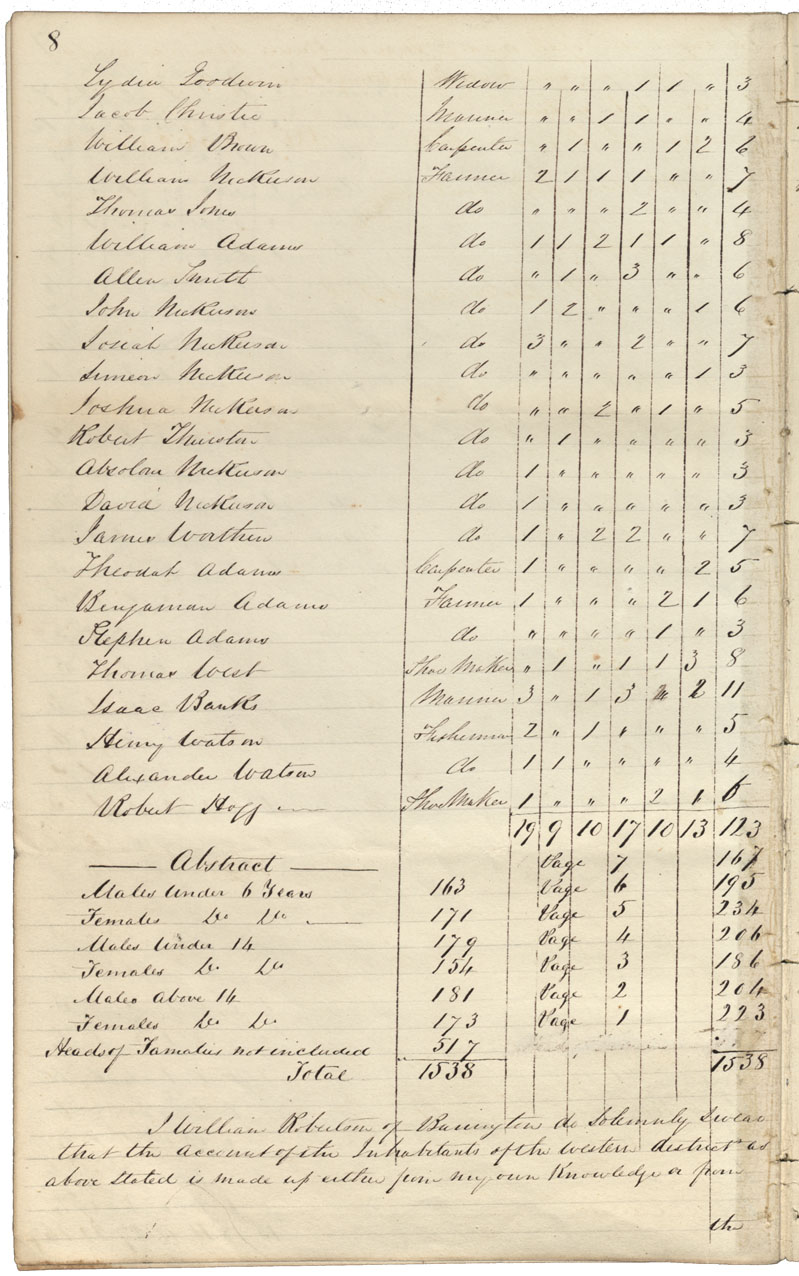 8
Lydia Goodwin Widow " " " 1 1 " 3
Jacob Christie Marriner " " 1 1 " " 4
William Brown Carpenter " 1 " " 1 2 6
William Nickerson Farmer 2 1 1 1 " " 7
Thomas Jones do " " " 2 " " 4
William Adams do 1 1 2 1 1 " 8
Allen Smith do " 1 " 3 " " 6
John Nickerson do 1 2 " " " 1 6
Josiah Nickerson do 3 " " 2 " " 7
Simeon Nickerson do " " " " " 1 3
Joshua Nickerson do " " 2 " 1 " 5
Robert Thurston do " 1 " " " " 3
Absolom Nickerson do 1 " " " " " 3
David Nickerson do 1 " " " " " 3
James Worthen do 1 " 2 2 " " 7
Theodat Adams Carpenter 1 " " " " 2 5
Benjaman Adams Farmer 1 " " " 2 1 6
Stephen Adams do " " " " 1 " 3
Thomas West Shoe Maker " 1 " 1 1 3 8
Isaac Banks Marriner 3 " 1 3 2 11
Henry Watson Fisherman 2 " 1 " " " 5
Alexander Watson do 1 1 " " " " 4
Robert Hogg Shoe Maker 1 " " " 2 1 6
19 9 10 17 10 13 123
Abstract Page 7 167
Males Under 6 Years 163 Page 6 195
Females Do Do 171 Page 5 234
Males Under 14 179 Page 4 206
Females Do Do 154 Page 3 186
Males above 14 181 Page 2 204
Females Do Do 173 Page 1 223
Heads of Famalies not included 517
Total 1538 1538
I William Robertson of Barrington do Solemnly Swear
that the account of the Inhabitants of the western district as
above Stated is made up either from my own Knowledge or from
the